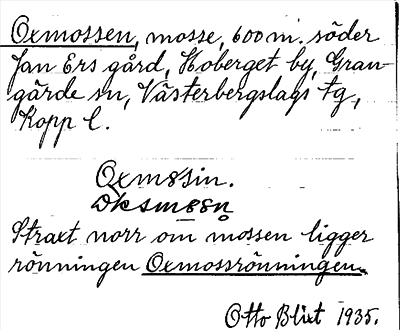 Oxmossen, mosse, 600 m. söder
Jan Ers gård, Hoberget by, Gran-
gärde sn, Västerbergslags tg,
Kopp l.
Oxmosin.
Straxt norr om mossen ligger
rönningen Oxmossrönningen.
Otto Blixt 1935.